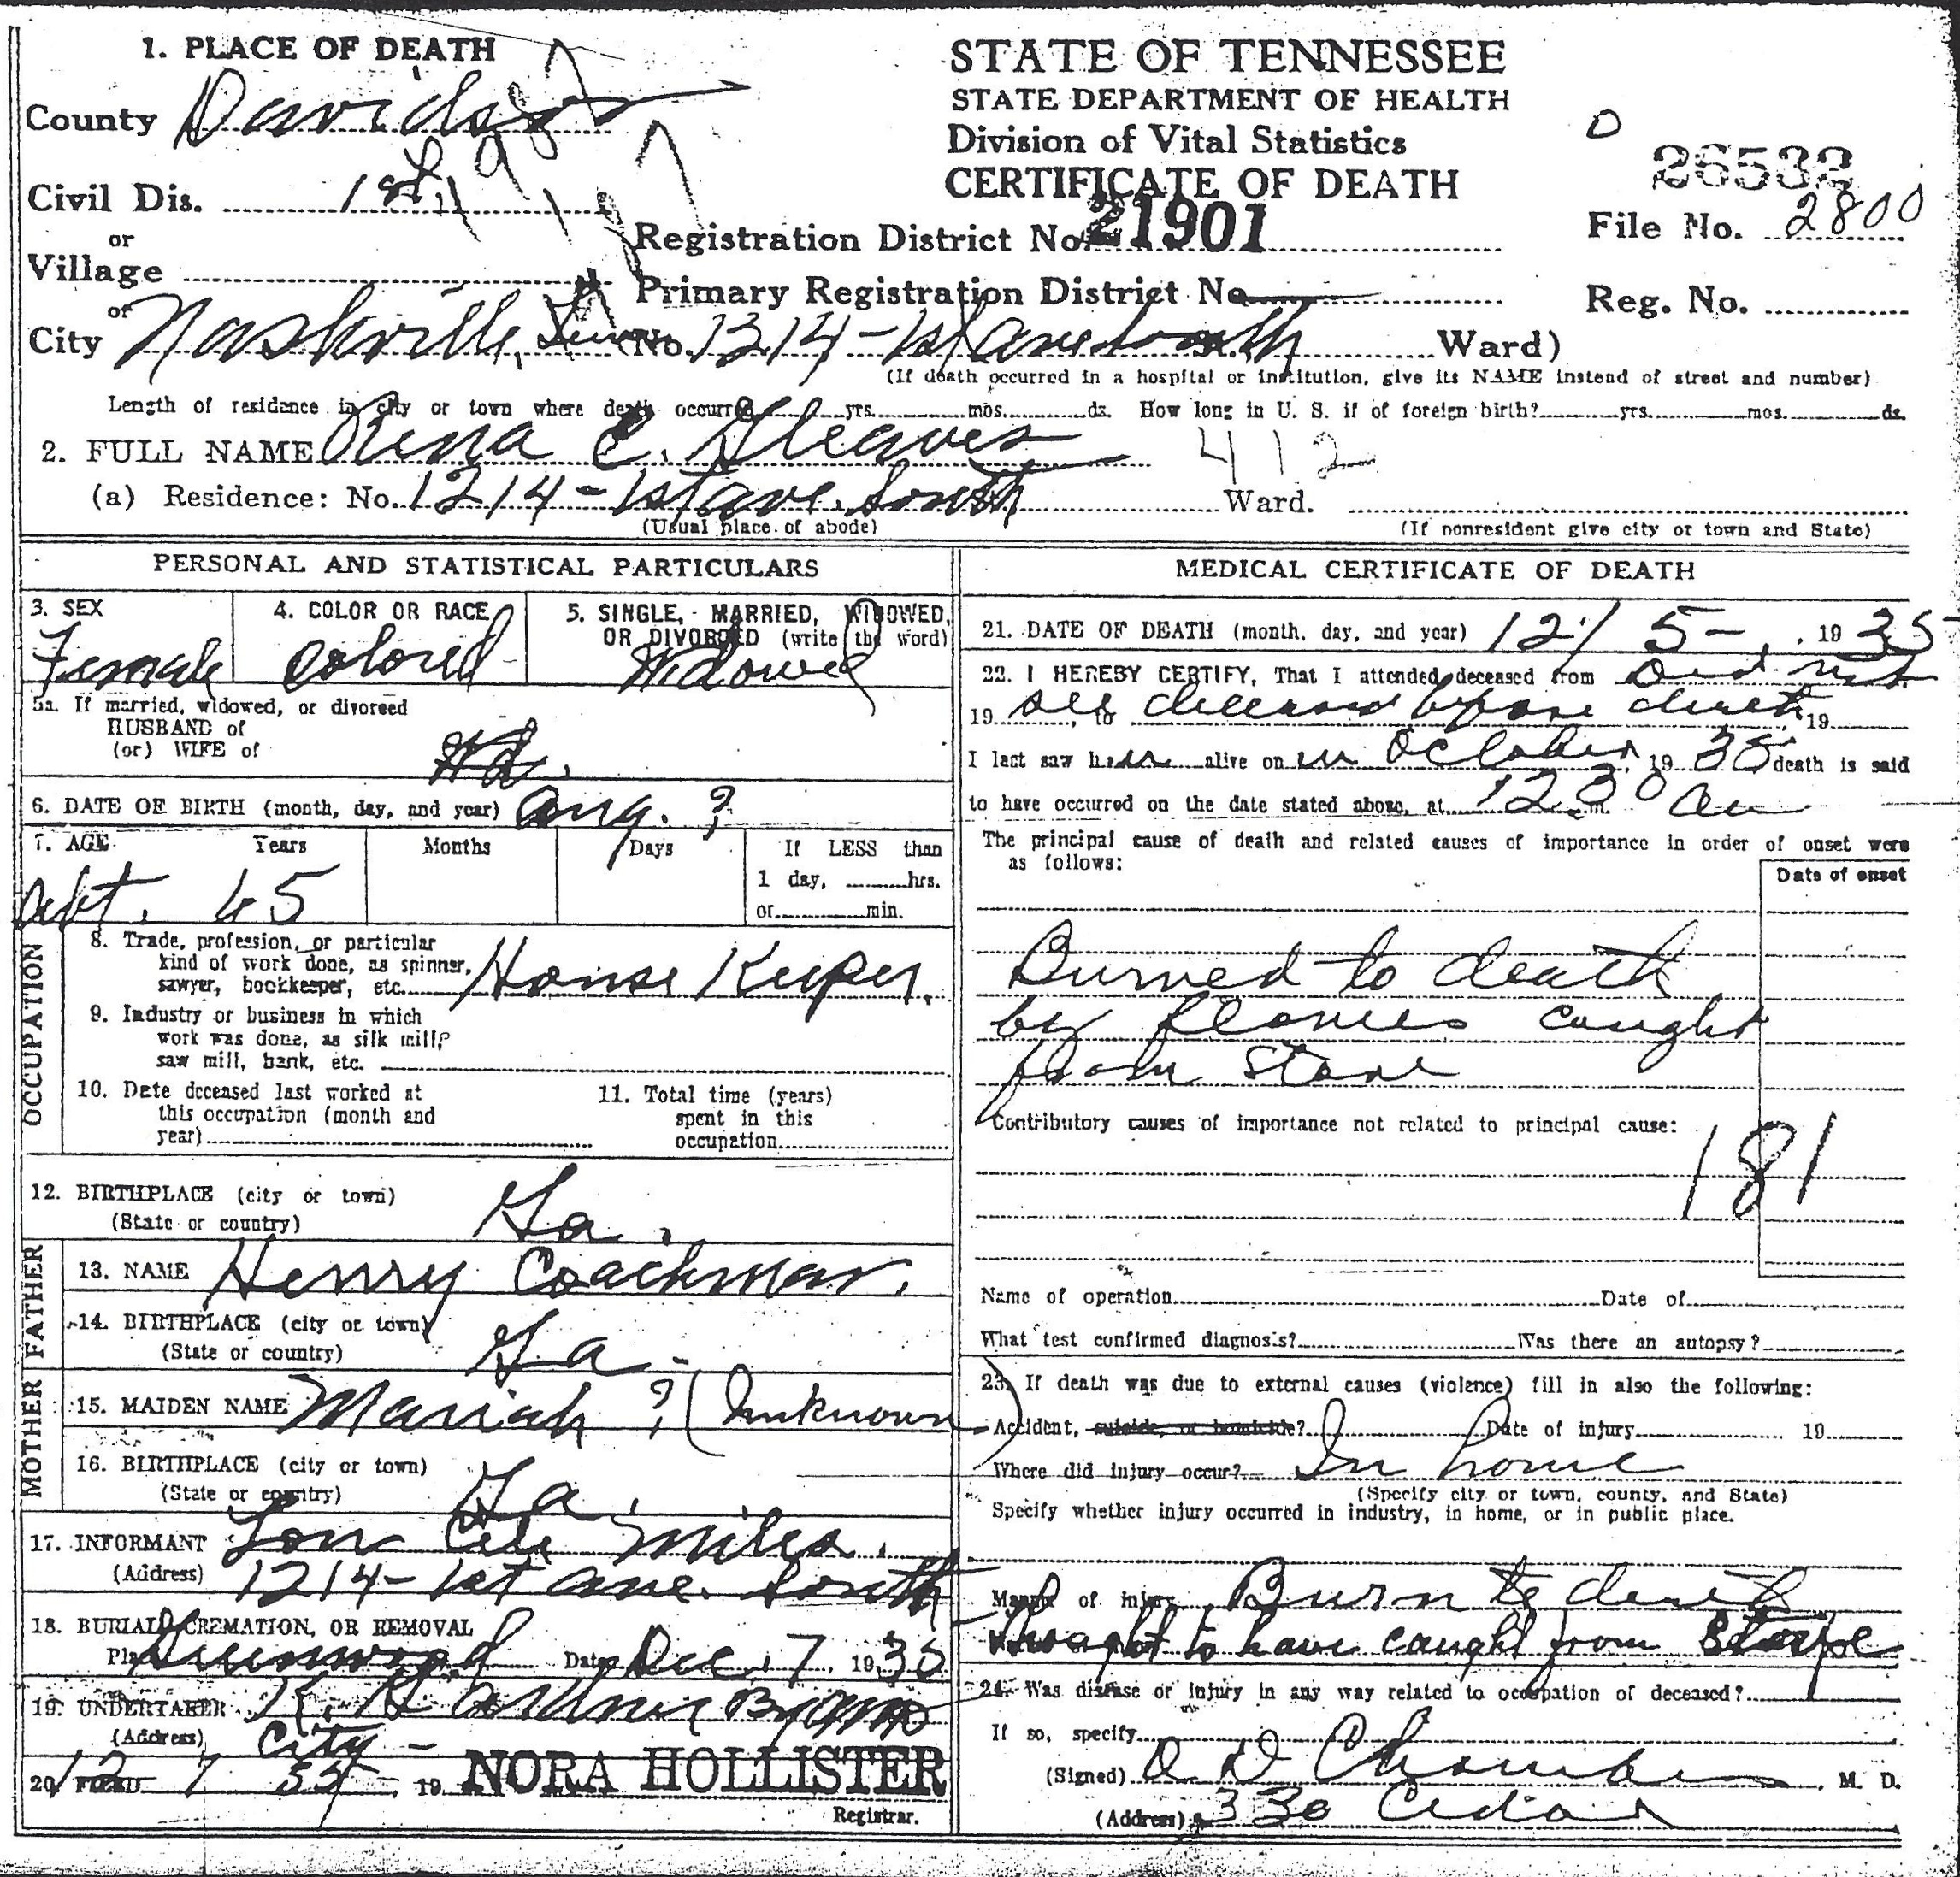 1. PLACE OF DEATH
County Davidson
Civil Dis. 1st
or
Village
or
City Nashville, Tenn (No. 1214 - 1st Ave South St. Ward)
(If death occurred in a hospital or institution, give its NAME instead of street and number)
STATE OF TENNESSEE
STATE DEPARTMENT OF HEALTH
Division of Vital Statistics
CERTIFICATE OF DEATH
Registration District No. 21901
Primary Registration District No.
26532
File No. 2800
Reg. No.
Length of residence in city or town where death occurred yrs. mos. ds. How long in U. S. if of foreign birth? yrs. mos. ds.
2. FULL NAME Rena C. Cleaves
412
(a) Residence: No. 1214 - 1st Ave. South Ward.
(Usual place of abode) (If nonresident give city or town and State)
PERSONAL AND STATISTICAL PARTICULARS
3. SEX
Female
4. COLOR OR RACE
Colored
5. SINGLE, MARRIED, WIDOWED,
OR DIVORCED (write the word)
Widowed
5a. If married, widowed, or divorced
HUSBAND of
(or) WIFE of
Wd.
6. DATE OF BIRTH (month, day, and year) Aug. ?
7. AGE Years Months Days If LESS than
1 day, hrs.
or min.
Abt. 65
OCCUPATION
8. Trade, profession, or particular
kind of work done, as spinner,
sawyer, bookkeeper, etc. House Keeper.
9. Industry or business in which
work was done, as silk mill,
saw mill, bank, etc.
10. Date deceased last worked at
this occupation (month and
year)
11. Total time (years)
spent in this
occupation
12. BIRTHPLACE (city or town)
(State or country) Ga.
FATHER
13. NAME Henry Coachman.
14. BIRTHPLACE (city or town)
(State or country) Ga.
MOTHER
15. MAIDEN NAME Mariah ? (Unknown)
16. BIRTHPLACE (city or town)
(State or country) Ga.
17. INFORMANT Lou Miles.
(Address) 1214 - 1st Ave. South
18. BURIAL, CREMATION, OR REMOVAL
Place Greenwood Date Dec. 7, 1935
19. UNDERTAKER
(Address) City -
20. FILED 12 7 35, 19 NORA HOLLISTER
Registrar.
MEDICAL CERTIFICATE OF DEATH
21. DATE OF DEATH (month, day, and year) 12/ 5 -, 1935
22. I HEREBY CERTIFY, That I attended deceased from Did not
19 see deceased before death, 19
I last saw her alive on in October, 1935 death is said
to have occurred on the date stated above, at 12 30 m. am
The principal cause of death and related causes of importance in order of onset were
as follows:
Date of onset
Burned to death
by flames caught
from stove
Contributory causes of importance not related to principal cause:
181
Name of operation Date of
What test confirmed diagnosis? Was there an autopsy?
23. If death was due to external causes (violence) fill in also the following:
Accident, suicide, or homicide? Date of injury 19
Where did injury occur? In home
(Specify city or town, county, and State)
Specify whether injury occurred in industry, in home, or in public place.
Manner of injury Burn to death
thought to have caught from stove
24. Was disease or injury in any way related to occupation of deceased?
If so, specify
(Signed) , M. D.
(Address) 330 Cedar